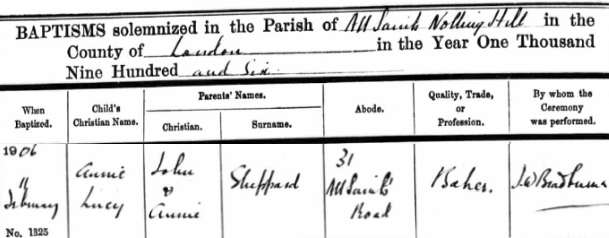 BAPTISMS solemnized in the Parish of All Saints Notting Hill in the
County of London in the Year One Thousand
Nine Hundred and Six
When Baptized.
Child's Christian Name.
Parents' Names.
Christian.
Surname.
Abode.
Quality, Trade, or Profession.
By whom the Ceremony was performed.
1906
11
February
No. 1325
Annie
Lucy
John
&
Annie
Sheppard
31
All Saints'
Road
Baker.